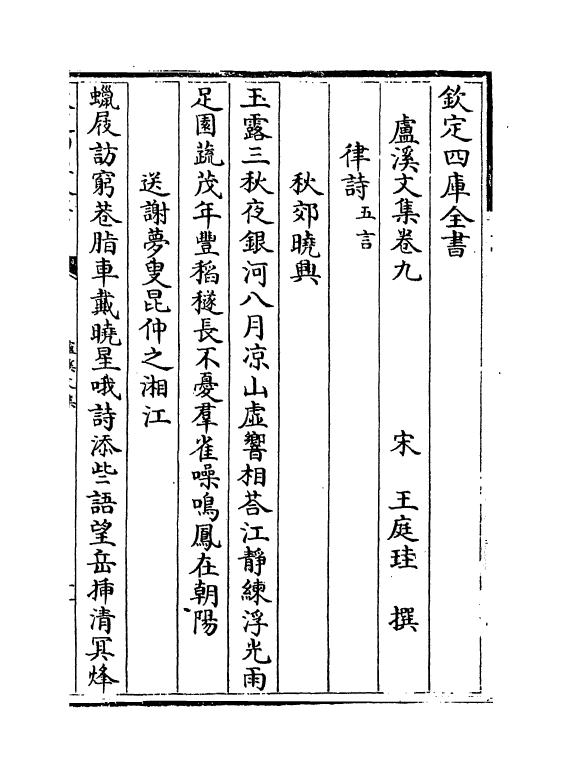 欽定四庫全書
盧溪文集卷九
宋　王庭珪　撰
律詩五言
秋郊曉興
玉露三秋夜銀河八月凉山虛響相荅江靜練浮光雨
足園蔬茂年豐稻穟長不憂羣雀噪鳴鳳在朝陽
送謝夢叟昆仲之湘江
蠟屐訪窮巷脂車戴曉星哦詩添些語望岳揷清冥烽